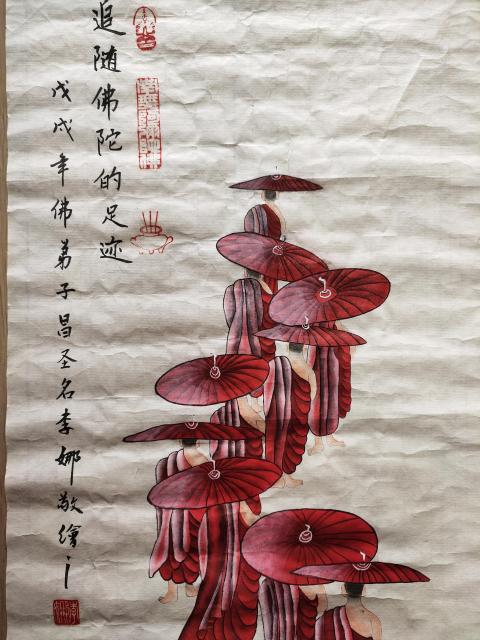 追随佛陀的足迹
戊戌年佛弟子昌圣名李娜敬繪